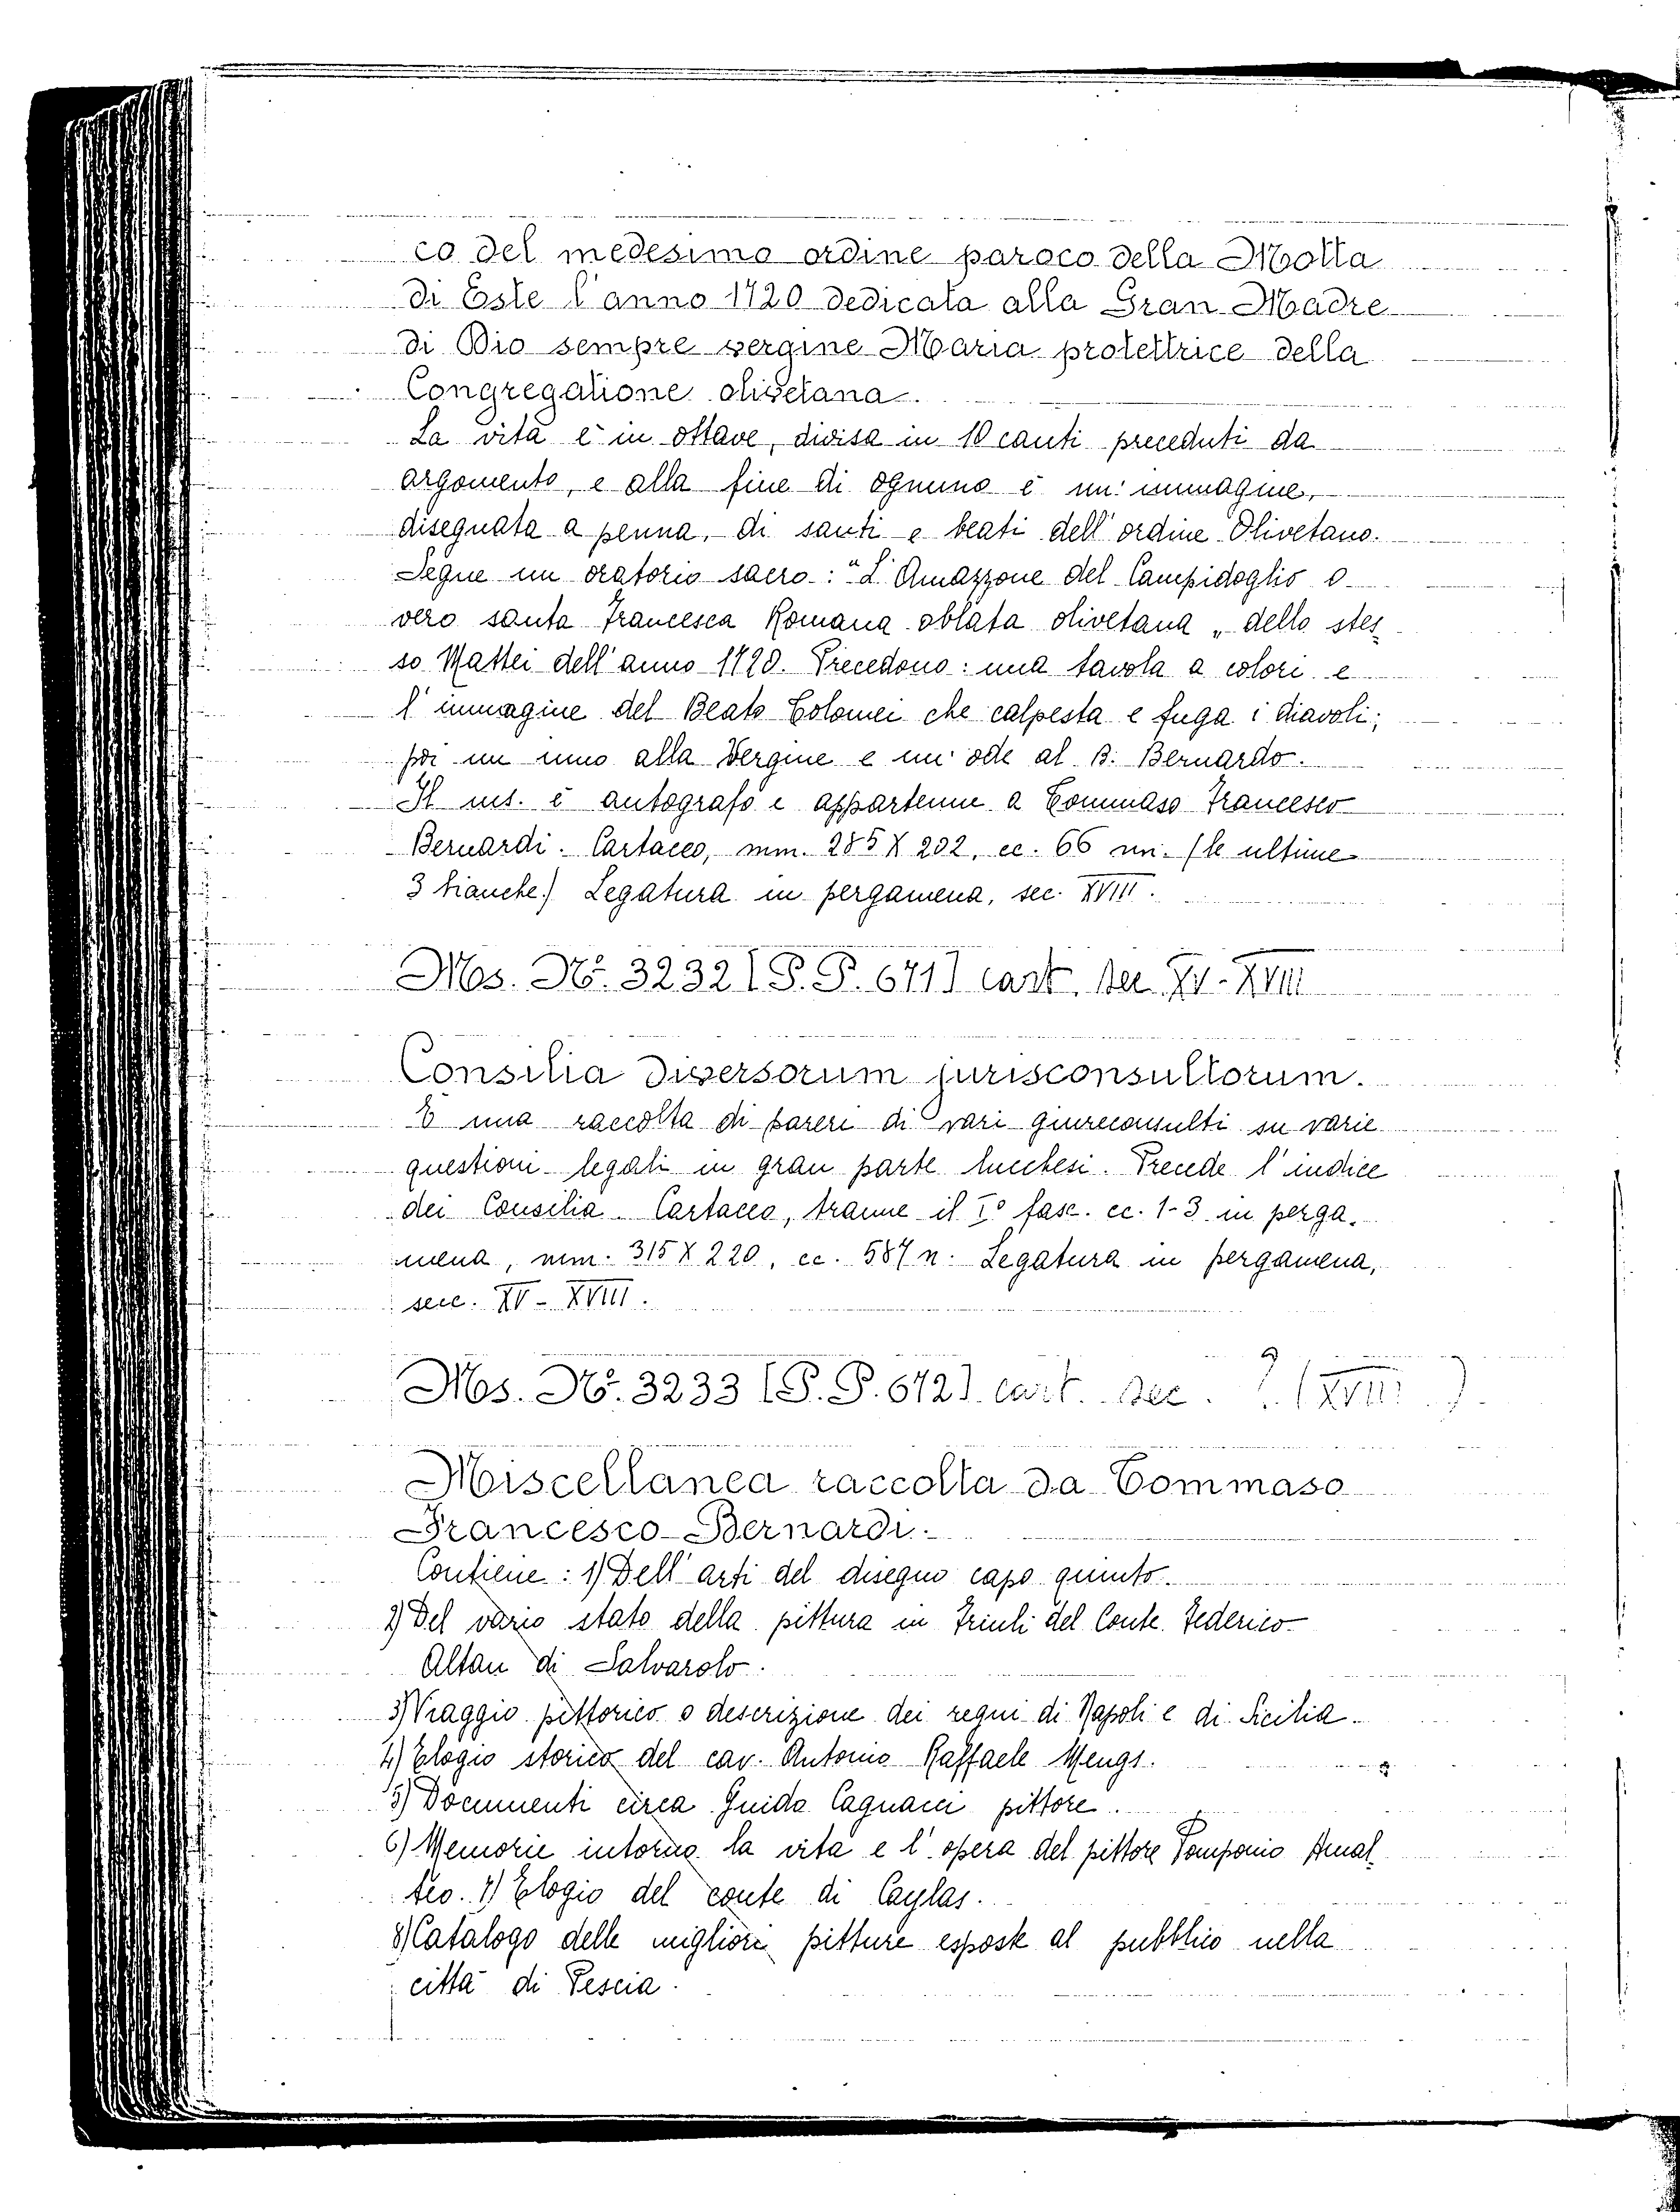 co del medesimo ordine paroco della Motta
di Este l'anno 1720 dedicata alla Gran Madre
di Dio sempre vergine Maria protettrice della
Congregatione olivetana.
La vita è in ottave, divisa in 10 canti preceduti da
argomento, e alla fine di ognuno è un' immagine,
disegnata a penna, di santi e beati dell' ordine Olivetano.
Segue un oratorio sacro: "L'Amazzone del Campidoglio o
vero santa Francesca Romana oblata olivetana „ dello stes-
so Mattei dell' anno 1720. Precedono: una tavola a colori e
l' immagine del Beato Tolomei che calpesta e fuga i diavoli;
poi un inno alla Vergine e un' ode al B. Bernardo.
Il ms. è autografo e appartenne a Tommaso Francesco
Bernardi. Cartaceo, mm. 285 X 202, cc. 66 nn. (le ultime
3 bianche) Legatura in pergamena, sec. XVIII.
Ms. N.º 3232 [P. P. 671] cart. sec. XV-XVIII
Consilia diversorum jurisconsultorum.
È una raccolta di pareri di vari giureconsulti su varie
questioni legali in gran parte lucchesi. Precede l' indice
dei Consilia. Cartaceo, tranne il Iº fasc. cc. 1-3 in perga-
mena, mm. 315 X 220, cc. 587 n. Legatura in pergamena,
secc. XV - XVIII.
Ms. N.º 3233 [P. P. 672] cart. sec. ? (XVIII)
Miscellanea raccolta da Tommaso
Francesco Bernardi.
Contiene: 1) Dell' arti del disegno capo quinto.
2) Del vario stato della pittura in Friuli del Conte Federico
Altan di Salvarolo.
3) Viaggio pittorico o descrizione dei regni di Napoli e di Sicilia.
4) Elogio storico del cav. Antonio Raffaele Mengs.
5) Documenti circa Guido Cagnacci pittore.
6) Memorie intorno la vita e l' opera del pittore Pomponio Amal-
teo. 7) Elogio del conte di Caylas.
8) Catalogo delle migliori pitture esposte al pubblico nella
città di Pescia.